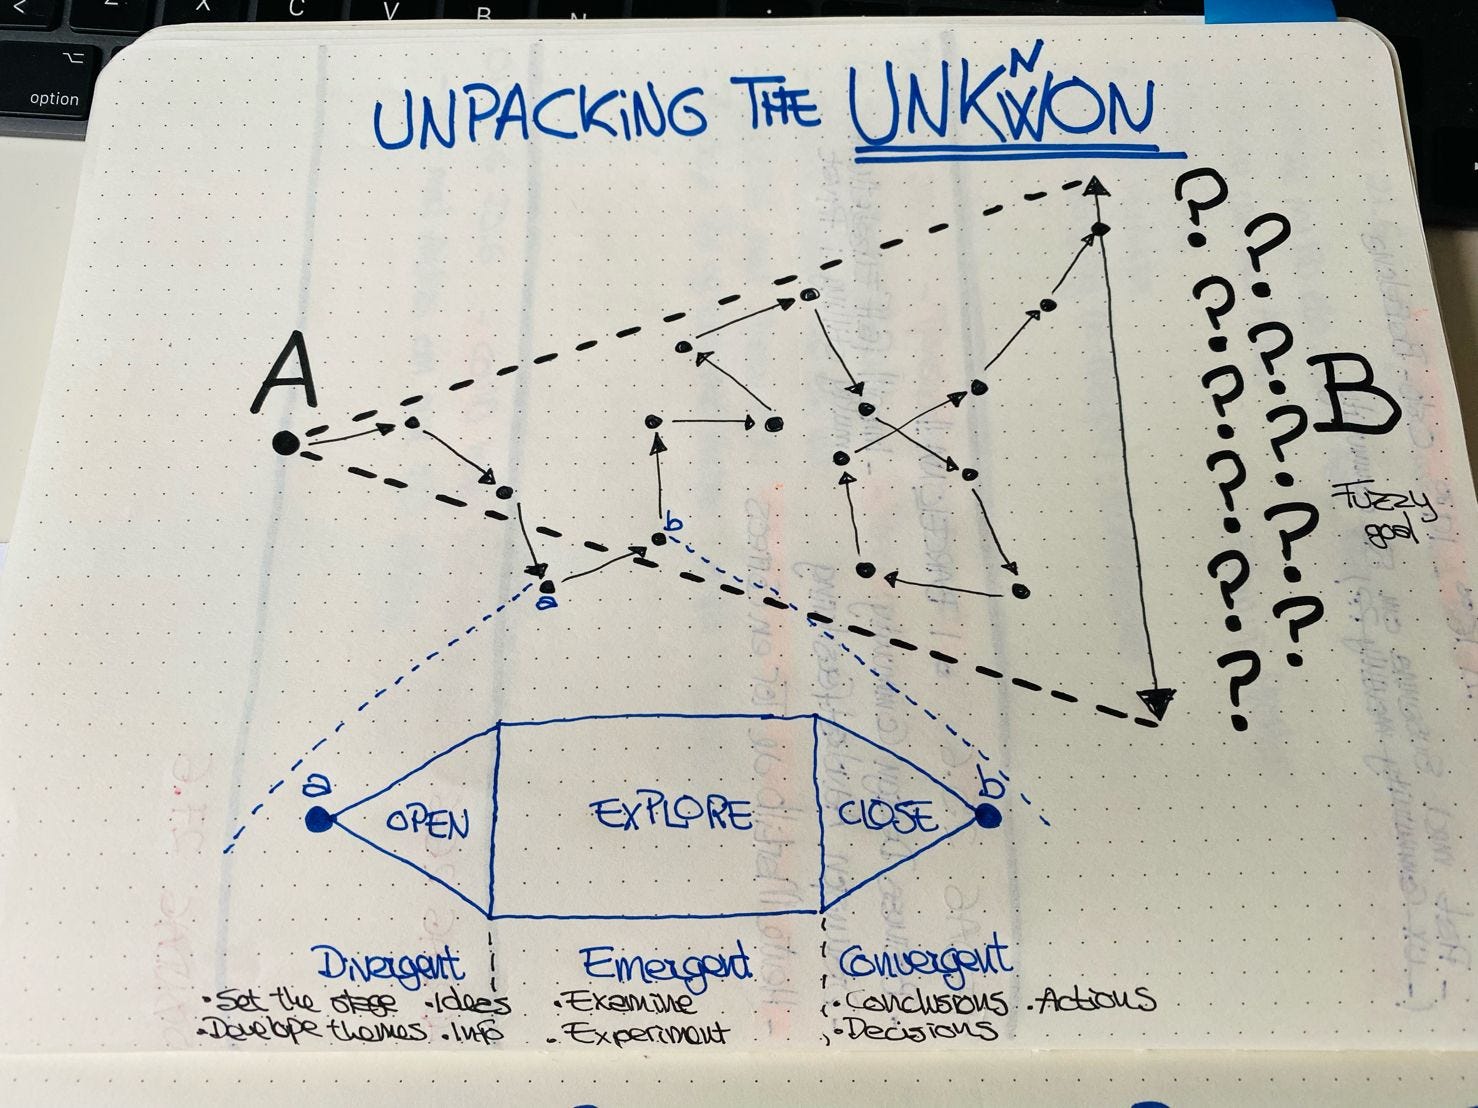 UNPACKING THE UNKNWON
A
B
Fuzzy
goal
b
a
a
b
OPEN
EXPLORE
CLOSE
Divergent
Emergent
Convergent
• Set the stage • Idees
• Examine
• Conclusions • Actions
• Develope themes • Info
• Experiment
• Decisions
? ? ? ? ? ?
? ? ? ? ?
option